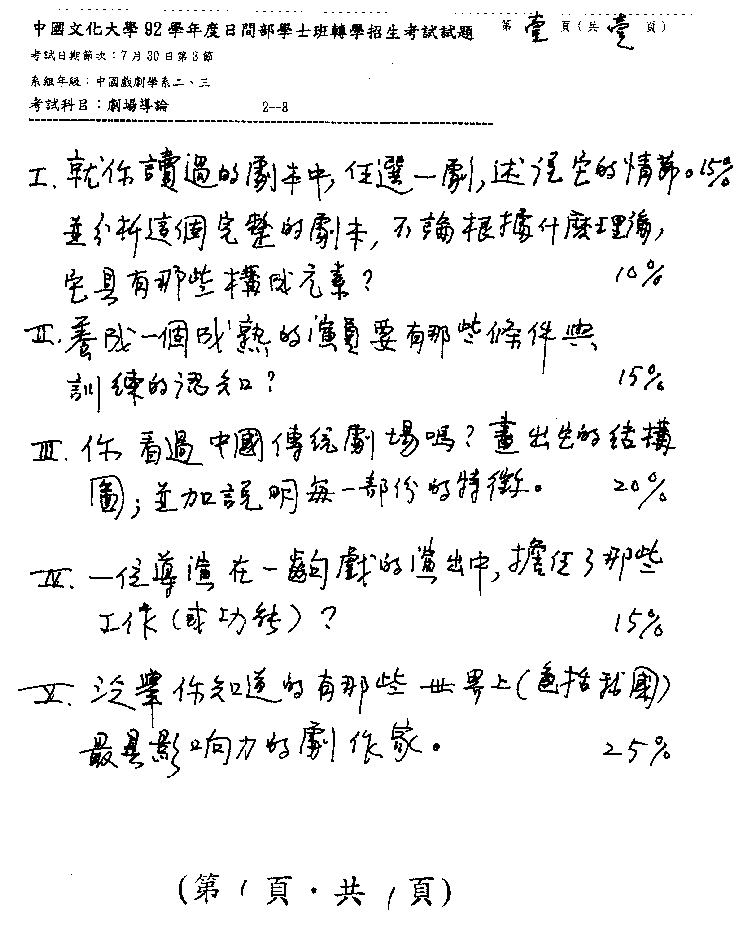 中國文化大學92學年度日間部學士班轉學招生考試試題 第壹頁(共壹頁)
考試日期節次:7月30日第3節
系組年級:中國戲劇學系二、三
考試科目:劇場導論 2--8
I. 就你讀過的劇本中,任選一劇,述說它的情節。15%
並分析這個完整的劇本,不論根據什麼理論,
它具有那些構成元素? 10%
II. 養成一個成熟的演員要有那些條件與
訓練的認知? 15%
III. 你看過中國傳統劇場嗎?畫出它的結構
圖;並加說明每一部份的特徵。 20%
IV. 一位導演在一齣戲的演出中,擔任了那些
工作(或功能)? 15%
V. 泛舉你知道的有那些世界上(包括我國)
最具影响力的劇作家。 25%
(第1頁.共1頁)